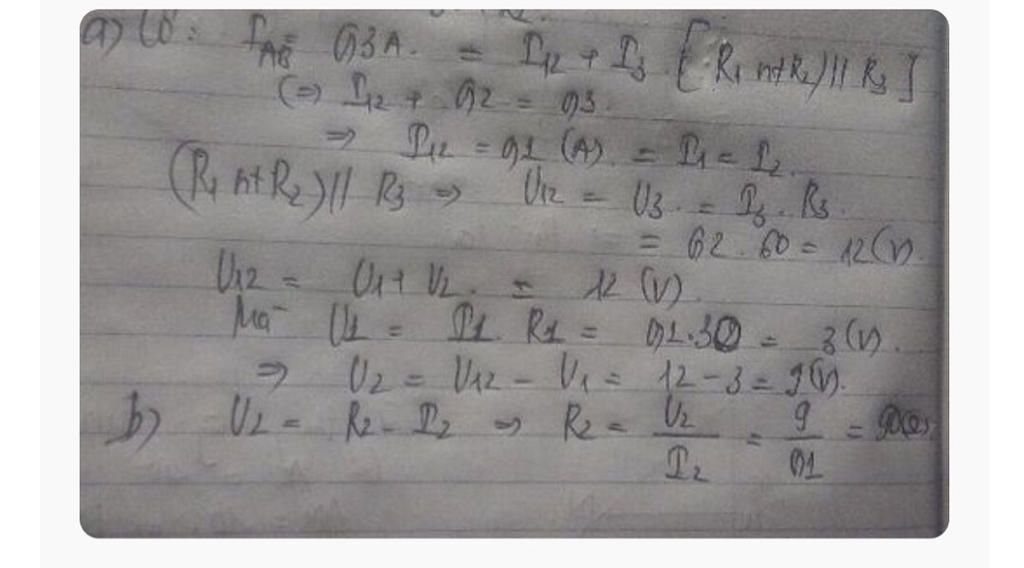 a) Có: I_AB = 0,3A. = I₁₂ + I₃ [R₁ nt R₂) // R₃]
(=) I₁₂ + 0,2 = 0,3
=> I₁₂ = 0,1 (A) = I₁ = I₂.
(R₁ nt R₂) // R₃ => U₁₂ = U₃ = I₃ . R₃
= 0,2 . 60 = 12 (V)
U₁₂ = U₁ + U₂ = 12 (V)
Mà U₁ = I₁ . R₁ = 0,1 . 30 = 3 (V).
=> U₂ = U₁₂ - U₁ = 12 - 3 = 9 (V).
b) U₂ = R₂ - I₂ => R₂ = U₂/I₂ = 9/0,1 = 90